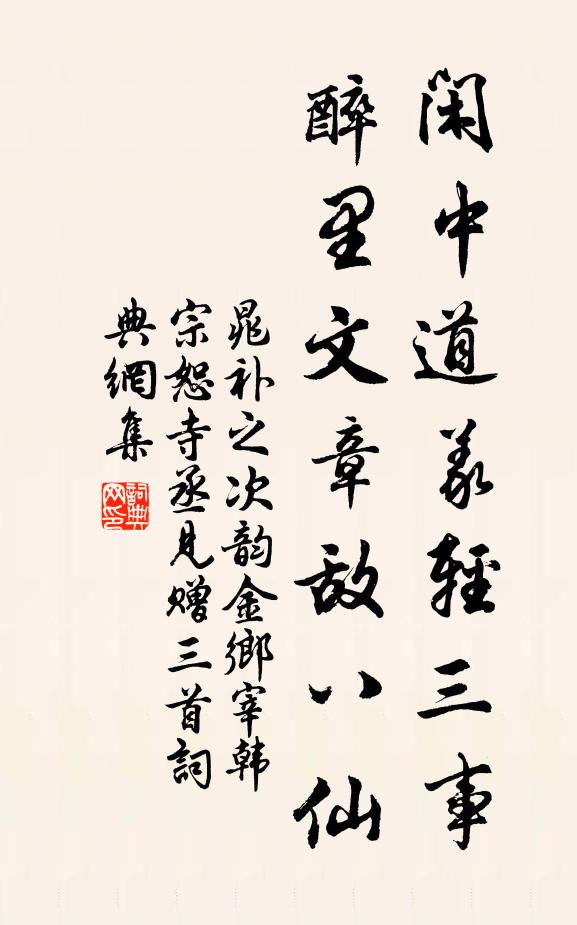 闲中道義輕三事
醉里文章敌八仙
晁补之次韵金鄉宰韩
宗恕寺丞見赠三首詞
典網集
詞典
网印